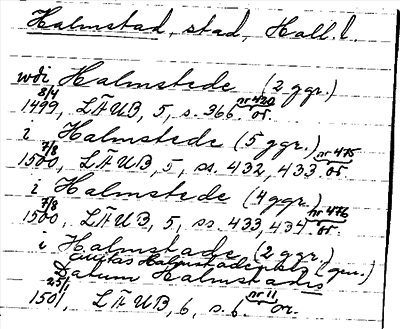 Halmstad, stad, Hall. l.
wdi Halmstede (2 ggr.)
8/4 nr 420
1499, LÄUB, 5, s. 366. or.
i Halmstede (5 ggr.)
7/8 nr 475
1500, LÄUB, 5, ss. 432, 433. or.
i Halmstede (4 ggr.)
7/8 nr 476
1500, LÄUB, 5, ss. 433, 434. or.
i Halmstade (2 ggr.)
Datum Halmstadis
25/1 nr 11
1501, LÄUB, 6, s. 6. or.